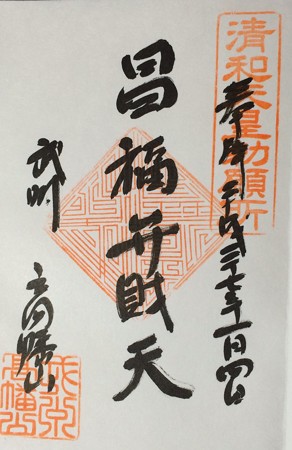 清和天皇勅願所
奉拝 平成二十七年一月四日
昌福弁財天
武州
高幡山